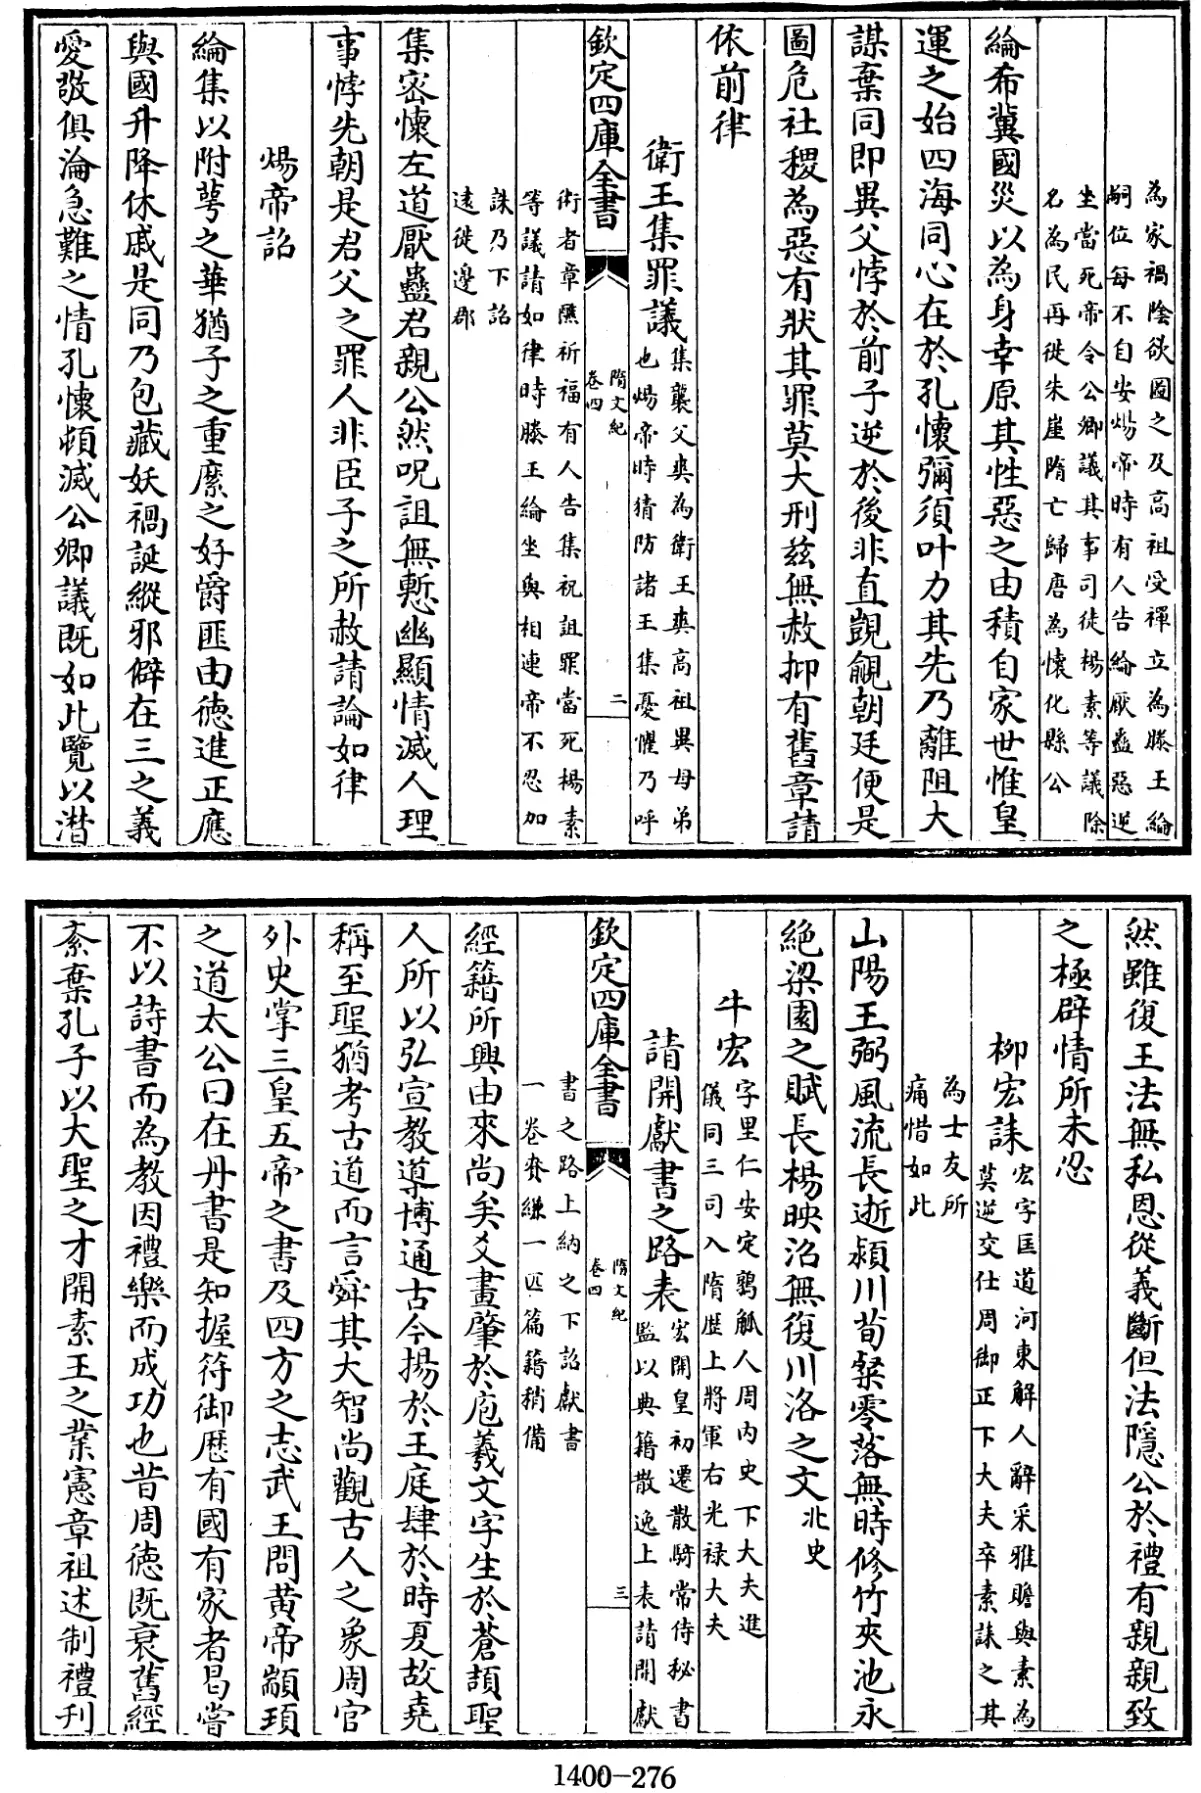 為家禍陰欲圖之及高祖受禪立為滕王綸
嗣位每不自安煬帝時有人告綸厭蠱惡逆
坐當死帝令公卿議其事司徒楊素等議除
名為民再徙朱崖隋亡歸唐為懷化縣公
綸希冀國災以為身幸原其性惡之由積自家世惟皇
運之始四海同心在於孔懷彌須叶力其先乃離阻大
謀棄同即異父悖於前子逆於後非直覬覦朝廷便是
圖危社稷為惡有狀其罪莫大刑兹無赦抑有舊章請
依前律
衛王集罪議
集襲父爽為衛王爽高祖異母弟
也煬帝時猜防諸王集憂懼乃呼
欽定四庫全書
隋文紀
卷四
二
術者章醮祈福有人告集祝詛罪當死楊素
等議請如律時滕王綸坐與相連帝不忍加
誅乃下詔
逺徙邊郡
集密懷左道厭蠱君親公然呪詛無慙幽顯情滅人理
事悖先朝是君父之罪人非臣子之所赦請論如律
煬帝詔
綸集以附萼之華猶子之重縻之好爵匪由德進正應
與國升降休戚是同乃包藏妖禍誕縱邪僻在三之義
愛敬俱淪急難之情孔懷頓滅公卿議既如此覽以潸
然雖復王法無私恩從義斷但法隱公於禮有親親致
之極辟情所未忍
柳宏誄
宏字匡道河東解人辭采雅贍與素為
莫逆交仕周御正下大夫卒素誄之其
為士友所
痛惜如此
山陽王弼風流長逝潁川荀粲零落無時修竹夾池永
絶梁園之賦長楊映沼無復川洛之文
北史
牛宏
字里仁安定鶉觚人周内史下大夫進
儀同三司入隋歴上將軍右光禄大夫
請開獻書之路表
宏開皇初遷散騎常侍秘書
監以典籍散逸上表請開獻
欽定四庫全書
隋文紀
卷四
三
書之路上納之下詔獻書
一卷賚縑一匹篇籍稍備
經籍所興由來尚矣爻畫肇於庖羲文字生於蒼頡聖
人所以弘宣教導博通古今揚於王庭肆於時夏故堯
稱至聖猶考古道而言舜其大智尚觀古人之象周官
外史掌三皇五帝之書及四方之志武王問黄帝顓頊
之道太公曰在丹書是知握符御歴有國有家者曷嘗
不以詩書而為教因禮樂而成功也昔周德既衰舊經
紊棄孔子以大聖之才開素王之業憲章祖述制禮刊
1400-276